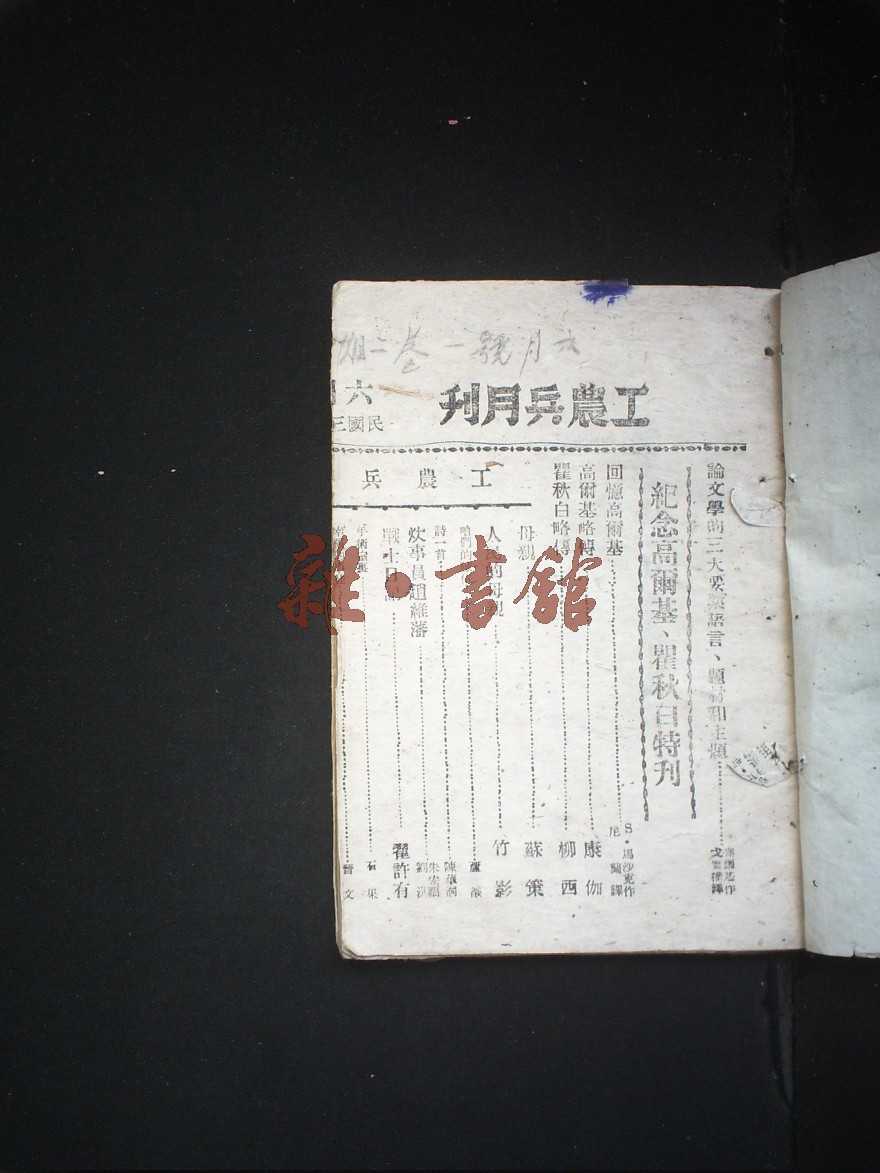 六月號一卷二期
工農兵月刊
六月
民國三
論文學的三大要素語言、題材和主題
高爾基作
戈寶權譯
紀念高爾基、瞿秋白特刊
回憶高爾基
S·馬沙克作
尼 蘭譯
高爾基略傳
康 伽
瞿秋白略傳
柳 西
工農兵
母親
蘇 策
人民的母親
竹 影
咱們的
蘆 荻
詩一首
炊事員趙維藩
劉 洪
戰士日記
翟許有
手術室裏
石 果
晉 文
雜·書館